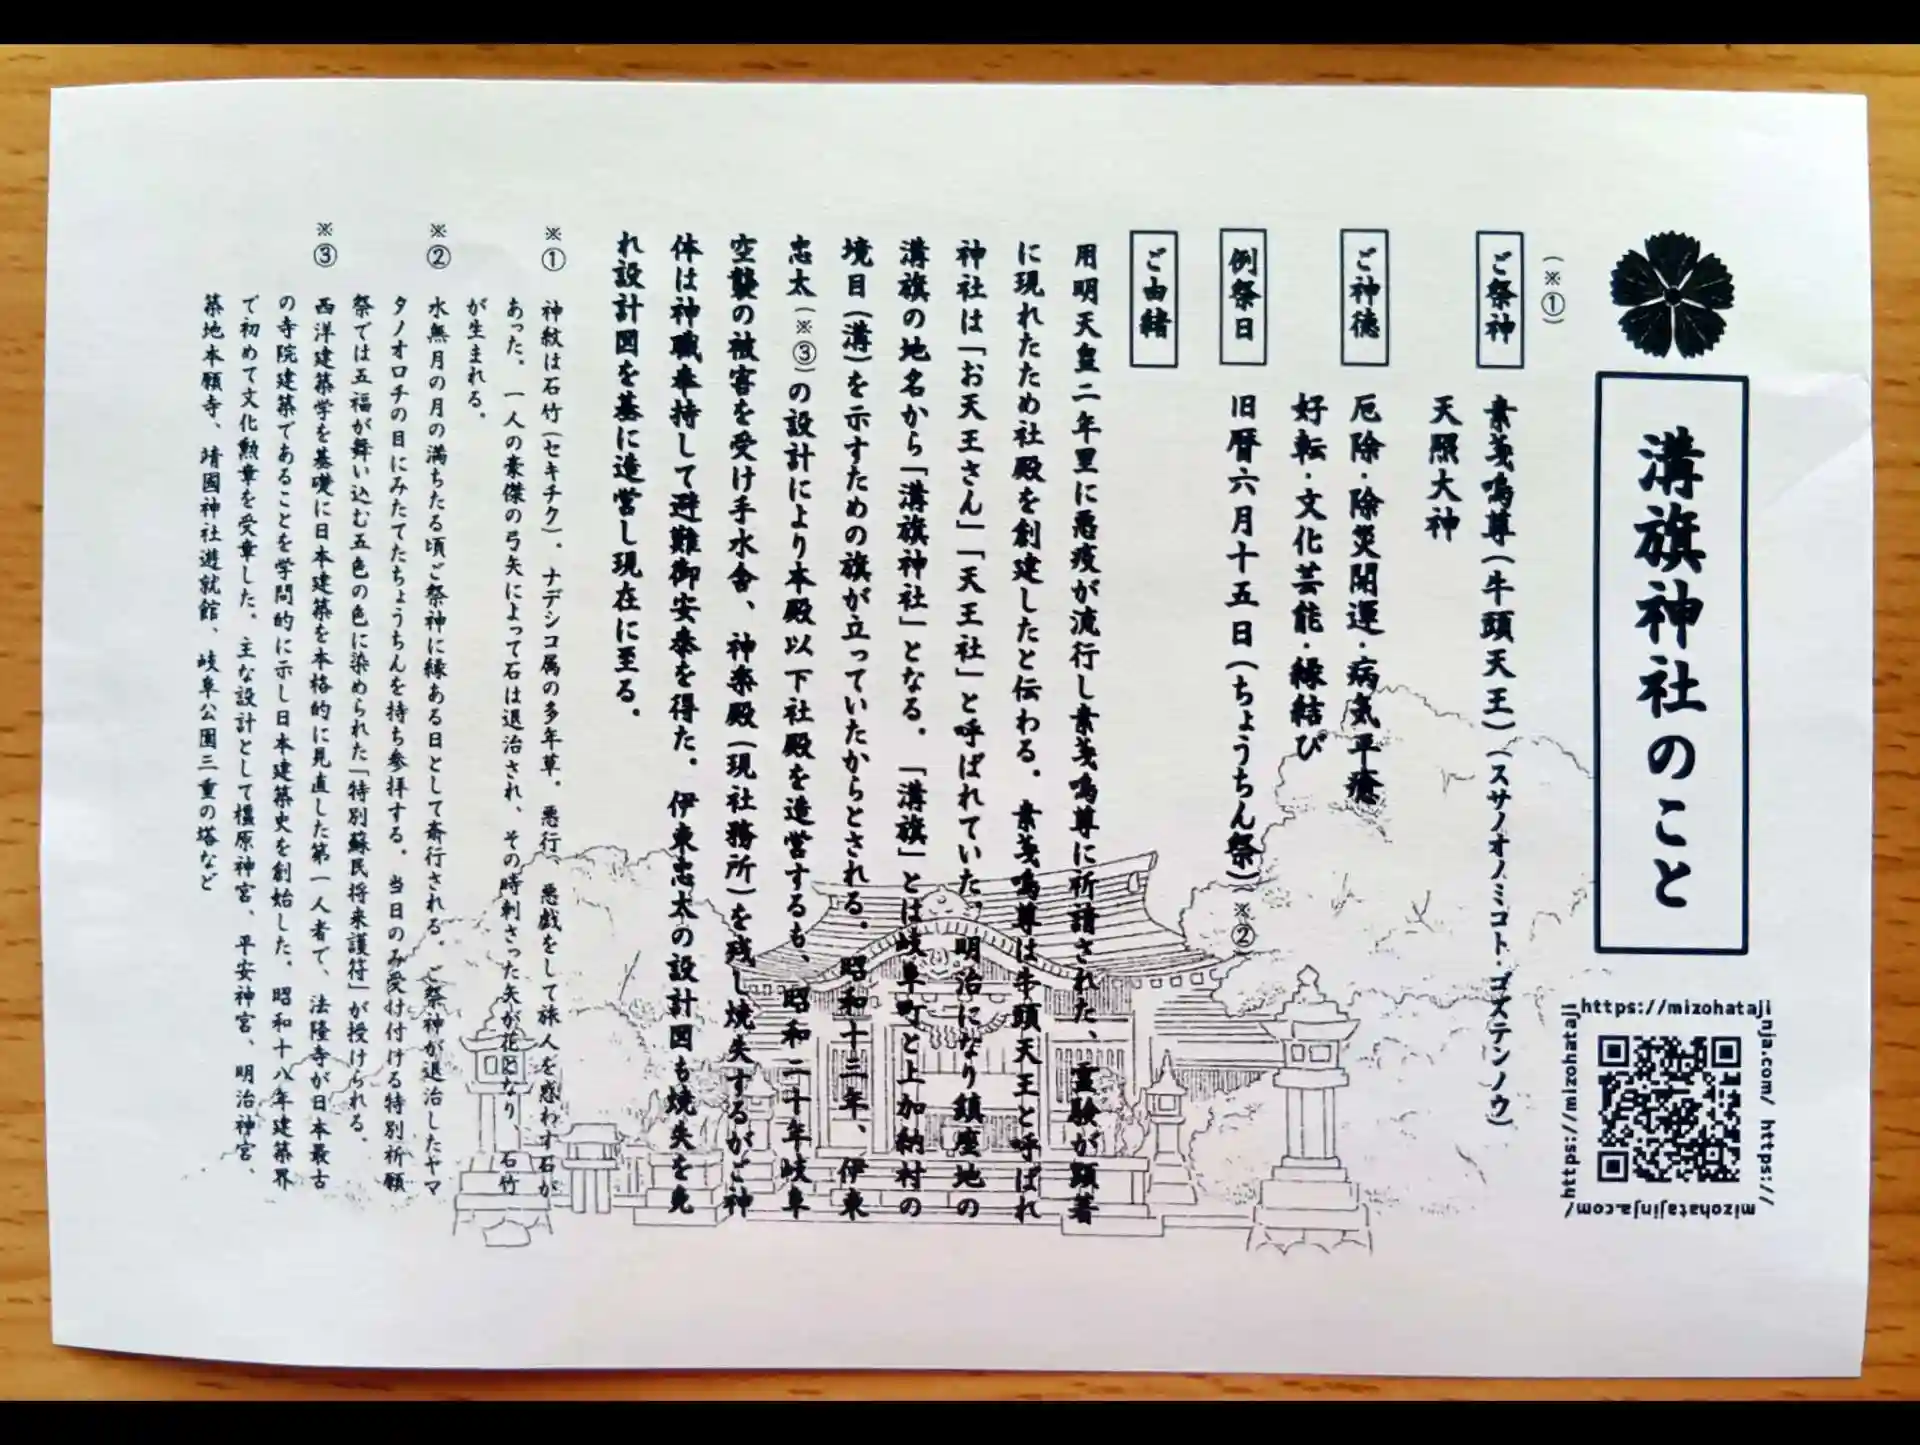 溝旗神社のこと
https://mizohatajinja.com/ https://mizohatajinja.com/ https://mizohataji
(※①)
ご祭神
素戔嗚尊(牛頭天王)(スサノオノミコト・ゴズテンノウ)
天照大神
ご神徳
厄除・除災開運・病気平癒
好転・文化芸能・縁結び
例祭日
旧暦六月十五日(ちょうちん祭)(※②)
ご由緒
用明天皇二年里に悪疫が流行し素戔嗚尊に祈請された、霊験が顕著
に現れたため社殿を創建したと伝わる。素戔嗚尊は牛頭天王と呼ばれ
神社は「お天王さん」「天王社」と呼ばれていた。明治になり鎮座地の
溝旗の地名から「溝旗神社」となる。「溝旗」とは岐阜町と上加納村の
境目(溝)を示すための旗が立っていたからとされる。昭和十三年、伊東
忠太(※③)の設計により本殿以下社殿を造営するも、昭和二十年岐阜
空襲の被害を受け手水舎、神楽殿(現社務所)を残し焼失するがご神
体は神職奉持して避難御安泰を得た。伊東忠太の設計図も焼失を免
れ設計図を基に造営し現在に至る。
※① 神紋は石竹(セキチク)、ナデシコ属の多年草。悪行、悪戯をして旅人を惑わす石が
あった。一人の豪傑の弓矢によって石は退治され、その時刺さった矢が花となり、石竹
が生まれる。
※② 水無月の月の満ちたる頃ご祭神に縁ある日として斎行される。ご祭神が退治したヤマ
タノオロチの目にみたてたちょうちんを持ち参拝する。当日のみ受け付ける特別祈願
祭では五福が舞い込む五色の色に染められた「特別蘇民将来護符」が授けられる。
※③ 西洋建築学を基礎に日本建築を本格的に見直した第一人者で、法隆寺が日本最古
の寺院建築であることを学問的に示し日本建築史を創始した。昭和十八年建築界
で初めて文化勲章を受章した。主な設計として橿原神宮、平安神宮、明治神宮、
築地本願寺、靖國神社遊就館、岐阜公園三重の塔など